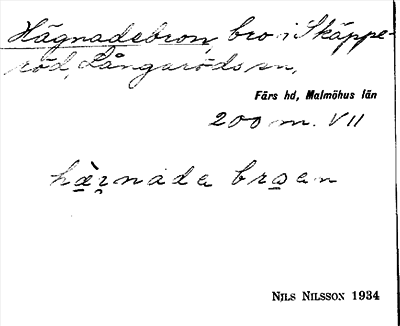 Hägnadebron, bro i Skäppe-
röd, Långaröds sn,
Färs hd, Malmöhus län
200 m. VII
hæ̀r̥nada brǫen
NILS NILSSON 1934